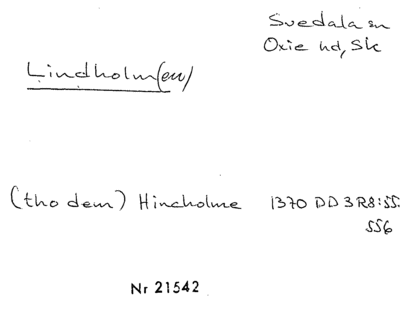 Svedala sn
Oxie hd, Sk
Lindholm(en)
(tho dem) Hincholme 1370 DD 3R8:55.
556
Nr 21542